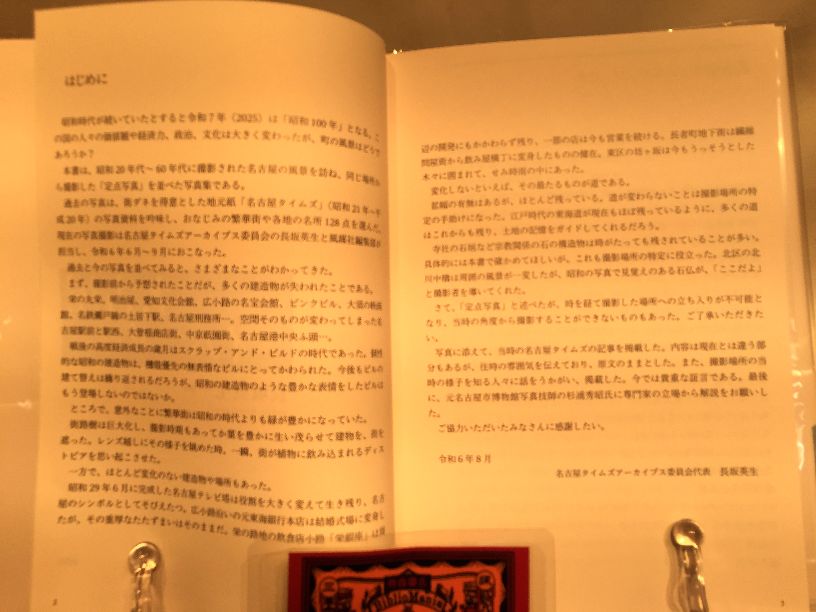 はじめに
昭和時代が続いていたとすると令和7年（2025）は「昭和100年」となる。こ
の国の人々の価値観や経済力、政治、文化は大きく変わったが、町の風景はどうで
あろうか？
本書は、昭和20年代〜60年代に撮影された名古屋の風景を訪ね、同じ場所か
ら撮影した「定点写真」を並べた写真集である。
過去の写真は、街ダネを得意とした地元紙「名古屋タイムズ」（昭和21年〜平
成20年）の写真資料を吟味し、おなじみの繁華街や各地の名所128点を選んだ。
現在の写真撮影は名古屋タイムズアーカイブス委員会の長坂英生と風媒社編集部が
担当し、令和6年6月〜9月におこなった。
過去と今の写真を並べてみると、さまざまなことがわかってきた。
まず、撮影前から予想されたことだが、多くの建造物が失われたことである。
栄の丸栄、明治屋、愛知文化会館、広小路の名宝会館、ピンクビル、大須の映画
館、名鉄瀬戸線の土居下駅、名古屋刑務所…。空間そのものが変わってしまった名
古屋駅前と駅西、大曽根商店街、中京祇園街、名古屋港中央ふ頭…。
戦後の高度経済成長の歳月はスクラップ・アンド・ビルドの時代であった。個性
的な昭和の建造物は、機能優先の無表情なビルにとってかわられた。今後もビルの
建て替えは繰り返されるだろうが、昭和の建造物のような豊かな表情をしたビルは
もう登場しないのではないか。
ところで、意外なことに繁華街は昭和の時代よりも緑が豊かになっていた。
街路樹は巨大化し、撮影時期もあってか葉を豊かに生い茂らせて建物を、街を
遮った。レンズ越しにその様子を眺めた時、一瞬、街が植物に飲み込まれるディス
トピアを思い起こさせた。
一方で、ほとんど変化のない建造物や場所もあった。
昭和29年6月に完成した名古屋テレビ塔は役割を大きく変えて生き残り、名古
屋のシンボルとしてそびえたつ。広小路沿いの元東海銀行本店は結婚式場に変身し
たが、その重厚なたたずまいはそのままだ。栄の路地の飲食店小路「栄銀座」は周
2
辺の開発にもかかわらず残り、一部の店は今も営業を続ける。長者町地下街は繊維
問屋街から飲み屋横丁に変身したものの健在。東区の坊ヶ坂は今もうっそうとした
木々に囲まれて、せみ時雨の中にあった。
変化しないといえば、その最たるものが道である。
拡幅の有無はあるが、ほとんど残っている。道が変わらないことは撮影場所の特
定の手助けになった。江戸時代の東海道が現在もほぼ残っているように、多くの道
はこれからも残り、土地の記憶をガイドしてくれるだろう。
寺社の石垣など宗教関係の石の構造物は時がたっても残されていることが多い。
具体的には本書で確かめてほしいが、これも撮影場所の特定に役立った。北区の北
川中橋は周囲の風景が一変したが、昭和の写真で見覚えのある石仏が、「ここだよ」
と撮影者を導いてくれた。
さて、「定点写真」と述べたが、時を経て撮影した場所への立ち入りが不可能と
なり、当時の角度から撮影することができないものもあった。ご了承いただきた
い。
写真に添えて、当時の名古屋タイムズの記事を掲載した。内容は現在とは違う部
分もあるが、往時の雰囲気を伝えており、原文のままとした。また、撮影場所の当
時の様子を知る人々に話をうかがい、掲載した。今では貴重な証言である。最後
に、元名古屋市博物館写真技師の杉浦秀昭氏に専門家の立場から解説をお願いし
た。
ご協力いただいたみなさんに感謝したい。
令和6年8月
名古屋タイムズアーカイブス委員会代表　長坂英生
3
BiblioMania